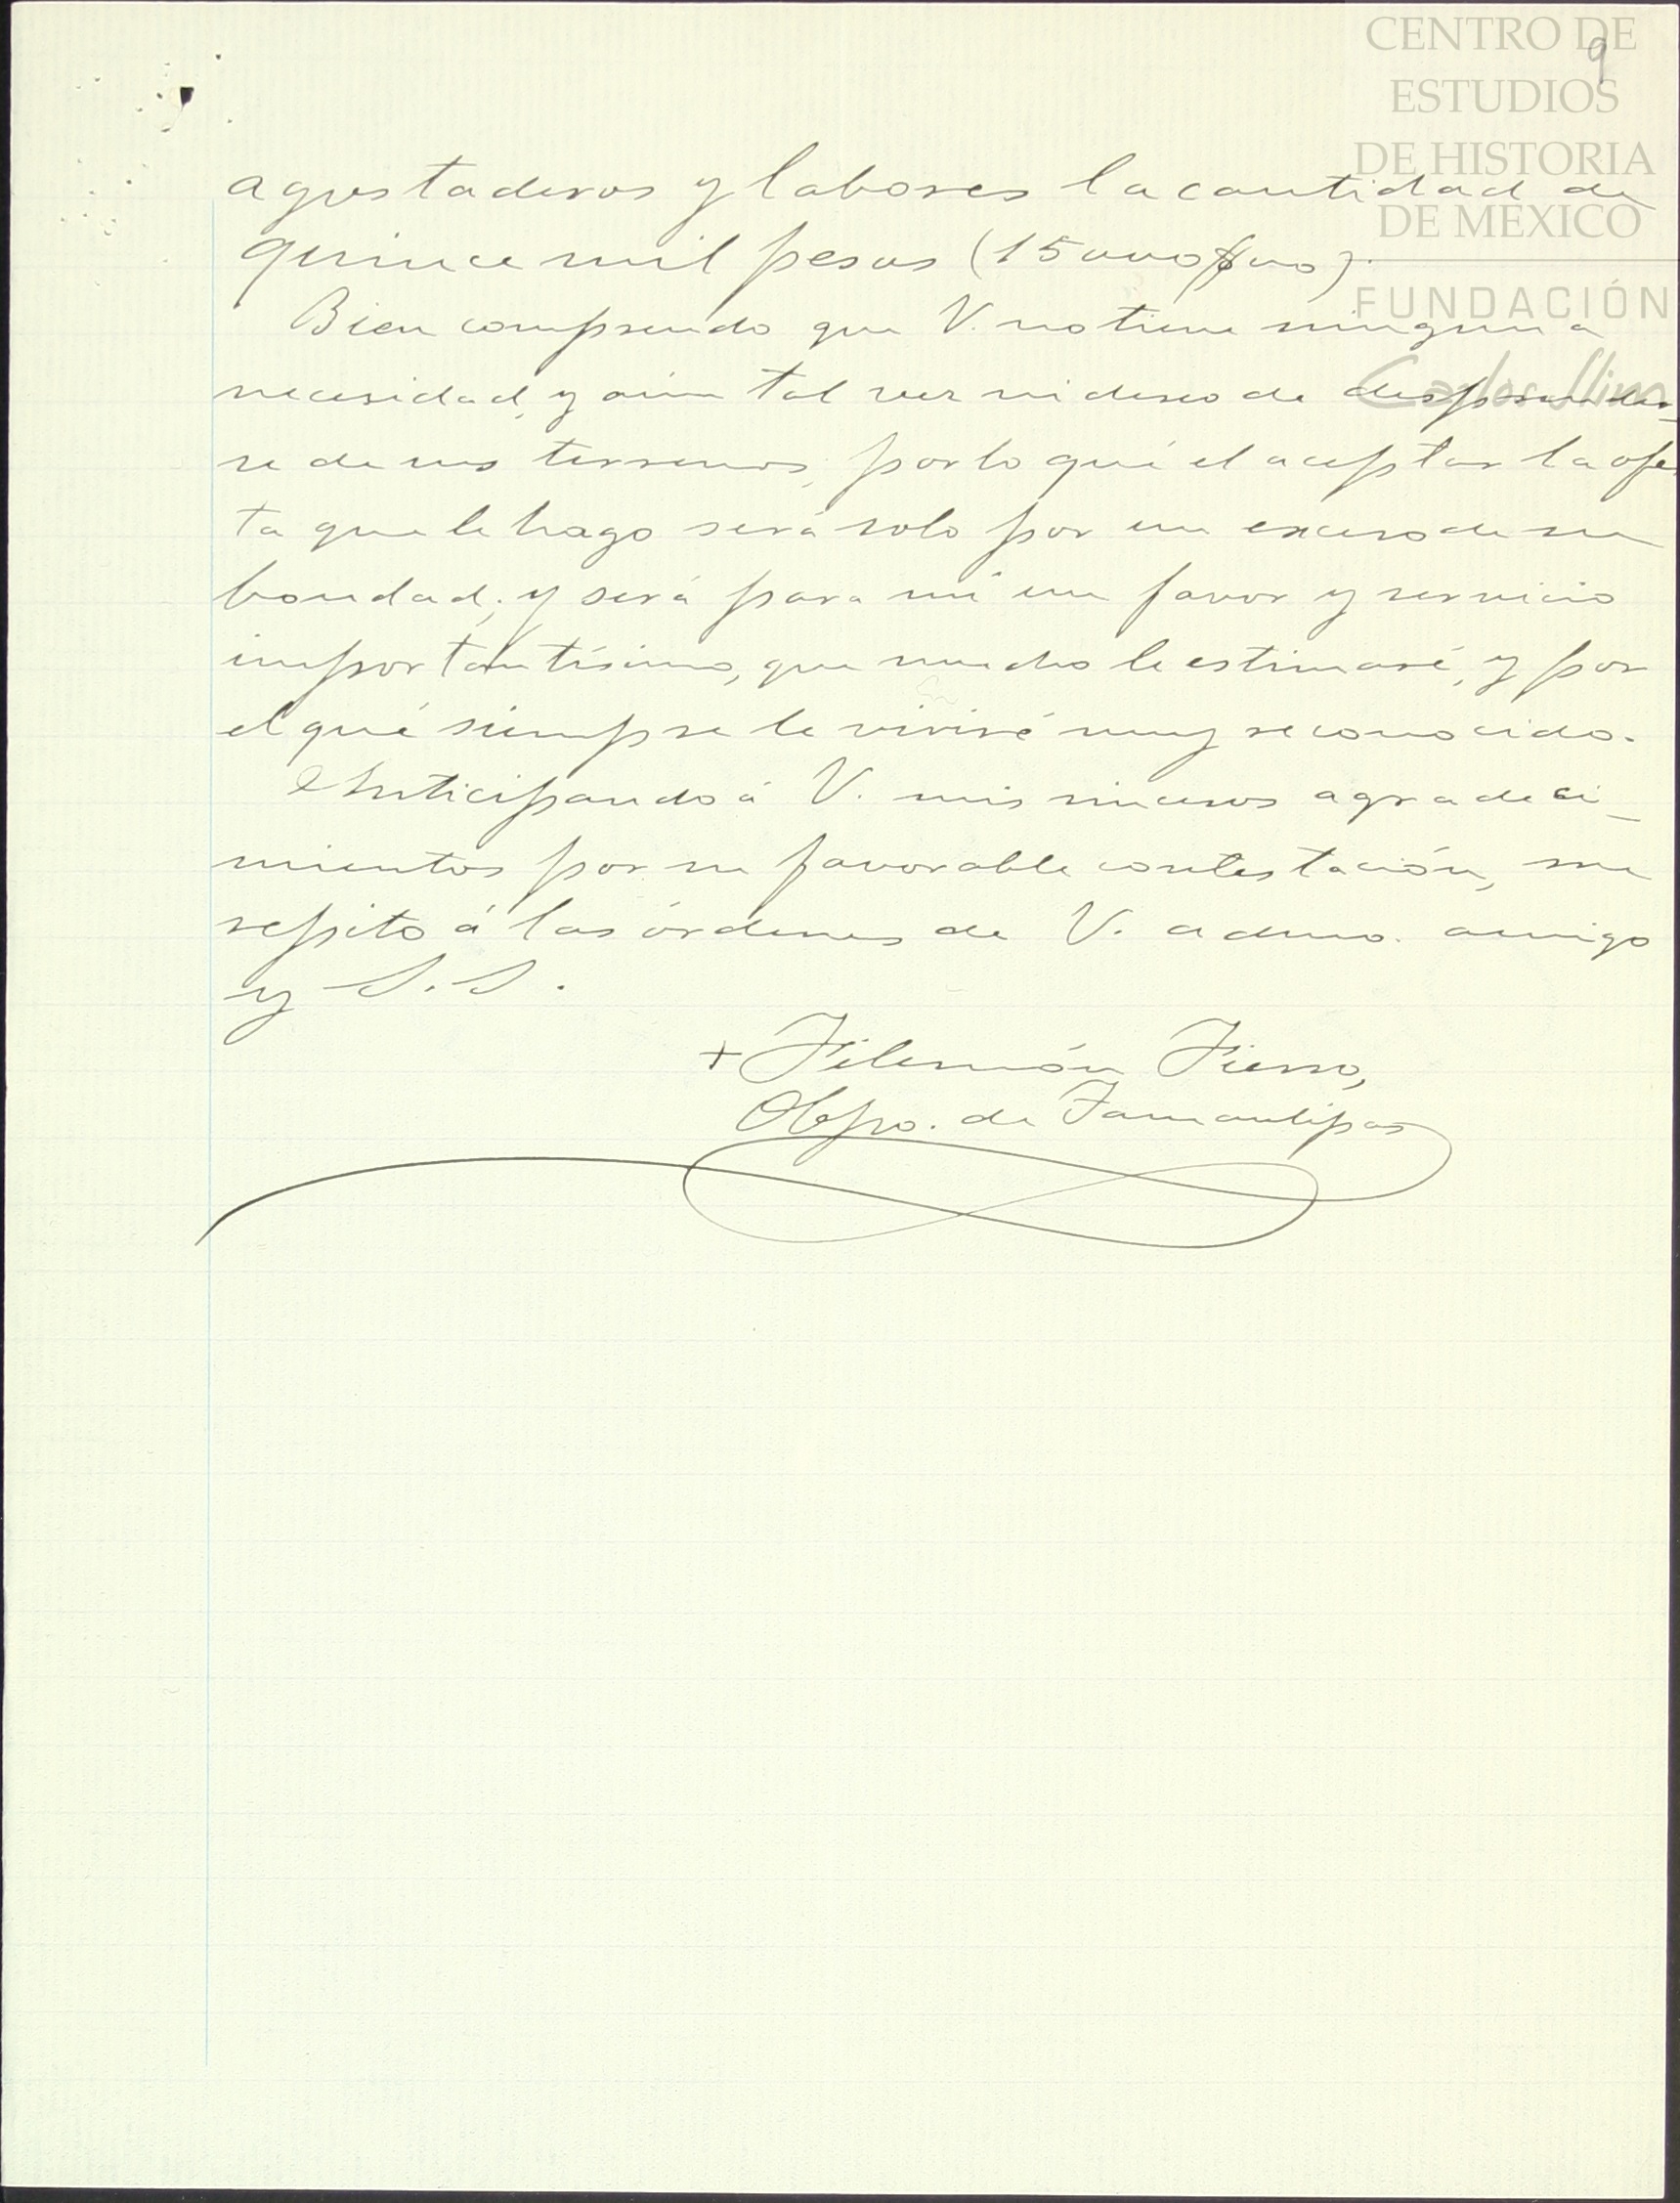 CENTRO DE
ESTUDIOS
DE HISTORIA
DE MÉXICO
FUNDACIÓN
Carlos Slim
9
agostaderos y labores la cantidad de
quince mil pesos (15000$00).
Bien comprendo que V. no tiene ninguna
necesidad, y aún tal vez ni deseo de desprender-
se de sus terrenos, por lo qué el aceptar la ofer
ta que le hago será solo por un exceso de su
bondad; y será para mí un favor y servicio
importantísimo, que mucho le estimaré, y por
el qué siempre le viviré muy reconocido.
Anticipando á V. mis sinceros agradeci-
mientos por su favorable contestación, me
repito á las órdenes de V. admo. amigo
y S. S.
+ Filemón Fierro,
Obpo. de Tamaulipas